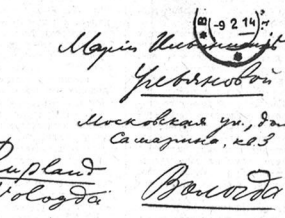 -9 2 14
Марiи Ильиничнѣ
Ульяновой
Московская ул., д
Самарина, кв 3
Russland
Wologda
Вологда